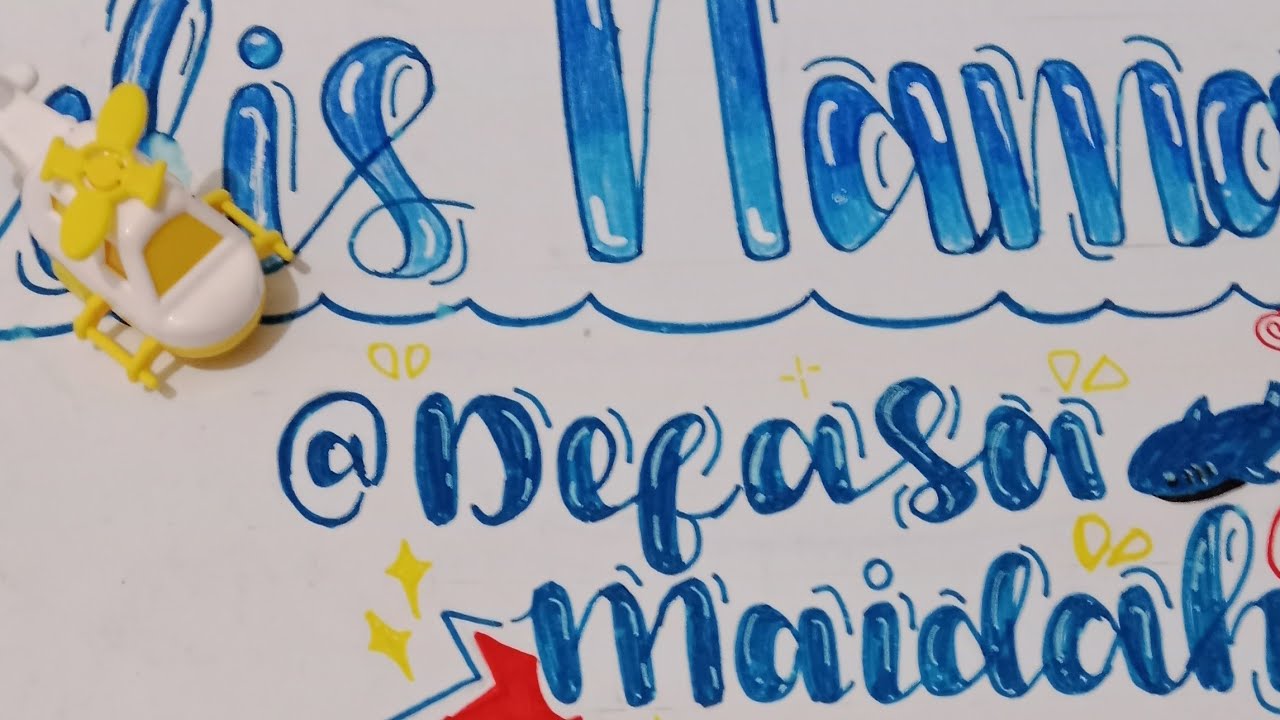 lis Nama
@Defasa
maidah